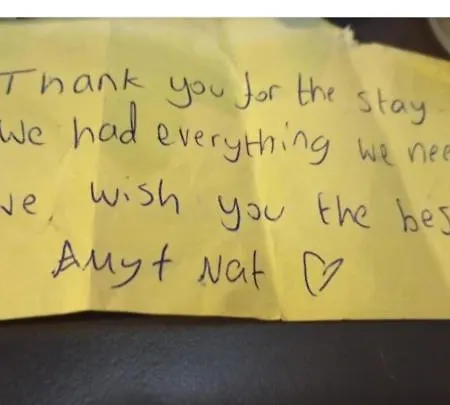 Thank you for the stay
We had everything we nee
ve wish you the bes
Amy + Nat ♡